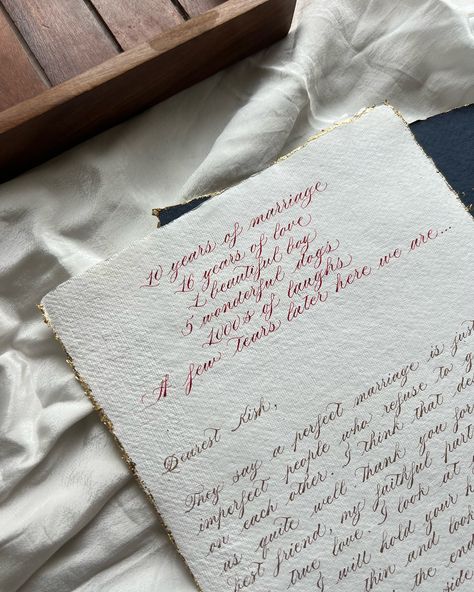 10 years of marriage
16 years of love
1 beautiful boy
5 wonderful dogs
1000s of laughs
A few tears later here we are...
Dearest Kish,
They say a perfect marriage is just
imperfect people who refuse to g
on each other. I think that de
us quite well. Thank you for
best friend, my faithful part
true love. I look at
I will hold your h
thin and
the end
side